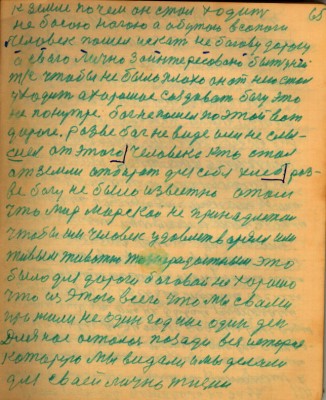 к земле почем он стал ходить 65
не босою ногою а обутою всопоги
Человек пошел искать не богову дорогу
а сваго лично заинтересовано быть
тке чтобы не было плохо он от него стал
уходить а хорошое создавать богу это
не понутре бог не пошел по этой вот
дароге, разве бог не виде или не слы-
шел от этого человека кто стал
от земли отберать для себя хлеб, раз-
ве богу не было известно о том
что мир марской не принадлежал
чтобы им человек удовлетварялся или
живым животно это
было для дороги боговой не хорошо
что из этого всего что мы с вами
прожили не один год не один ден
Для нас осталось позади вся история
которую мы видали и мы делали
для своей лично жизни